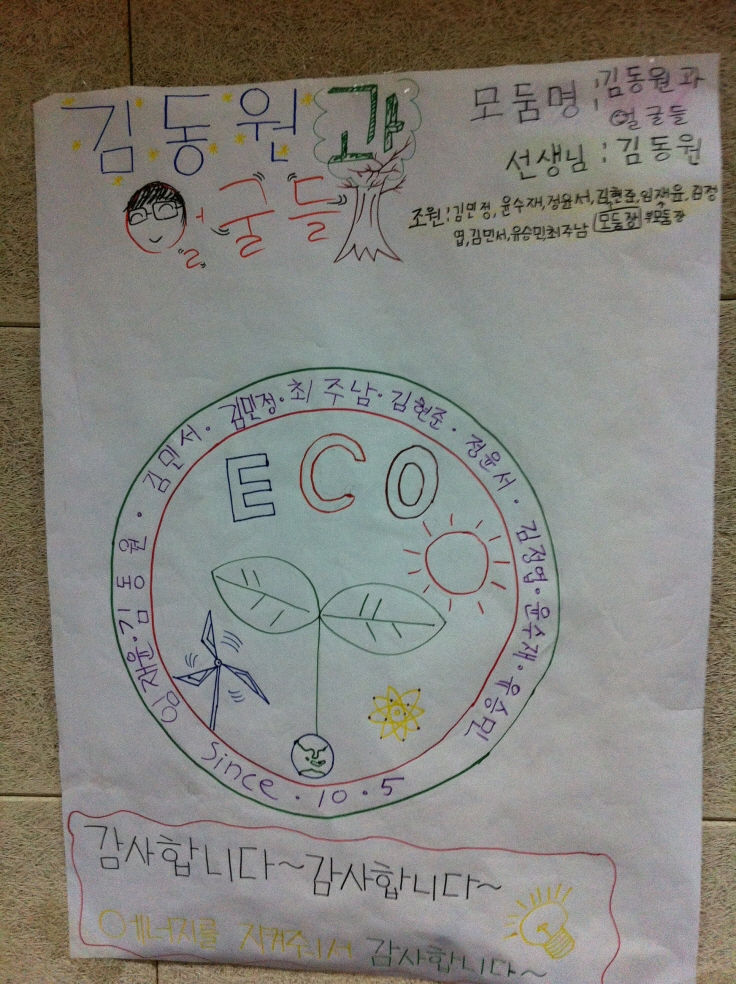 김동원과
얼굴들
모둠명 : 김동원과
얼굴들
선생님 : 김동원
조원 : 김민정, 윤수재, 정윤서, 김현준, 임재윤, 김정
엽, 김민서, 유승민, 최주남 모둠장 부모둠장
임재윤 · 김동원 · 김민서 · 김민정 · 최주남 · 김현준 · 정윤서 · 김정엽 · 윤수재 · 유승민
ECO
since · 10 · 5
감사합니다~감사합니다~
에너지를 지켜주셔서 감사합니다~